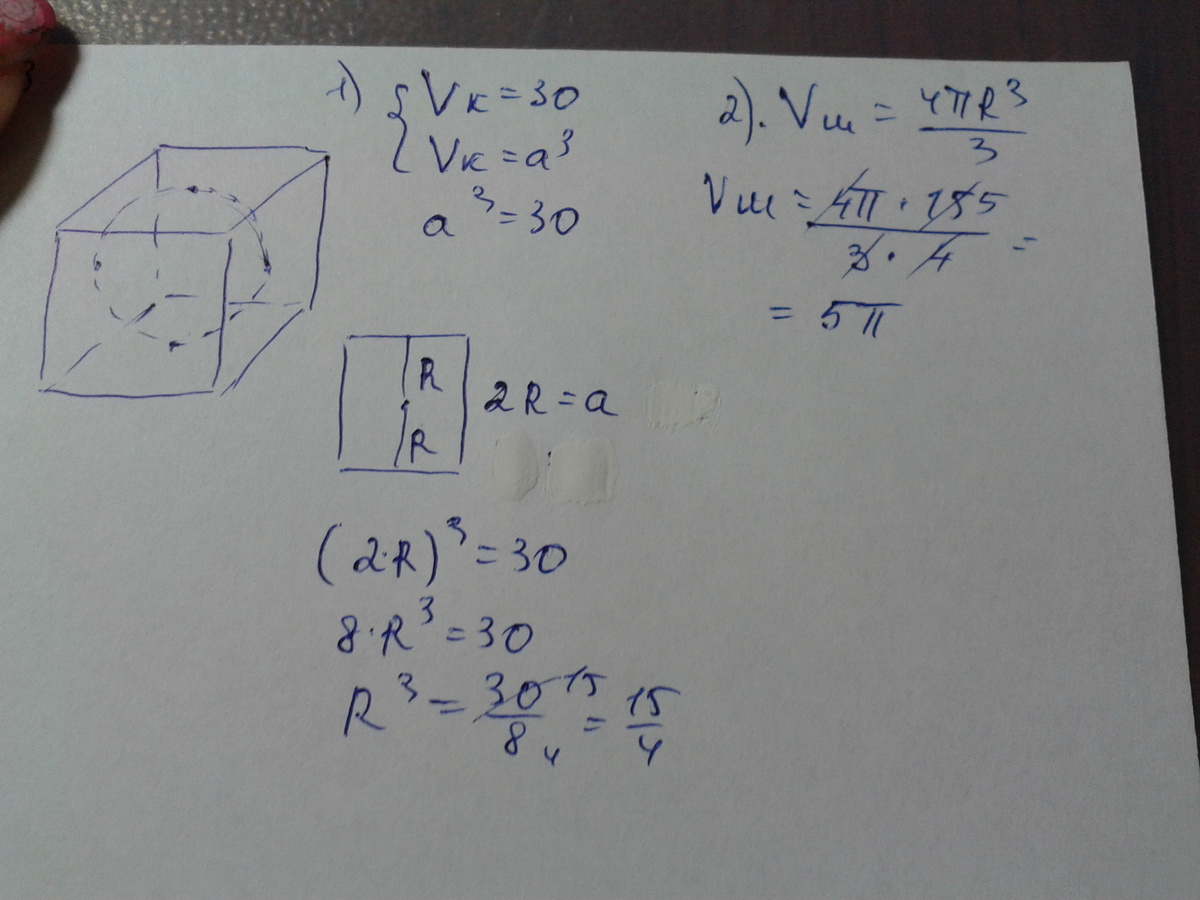 1) { Vк = 30
Vк = a³
a³ = 30
R
R
2R = a
(2·R)³ = 30
8·R³ = 30
R³ = 30/8 15 4 = 15/4
2). Vш = 4πR³/3
Vш = 4π · 15 5 / 3 · 4 =
= 5π